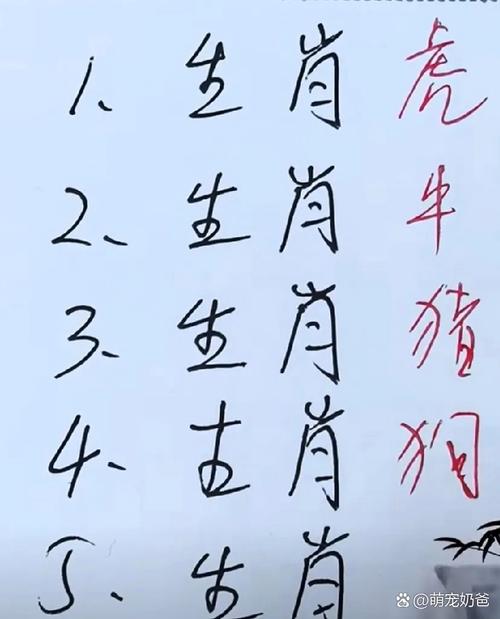 1、生肖虎
2、生肖牛
3、生肖猪
4、生肖狗
5、生肖
@萌宠奶爸